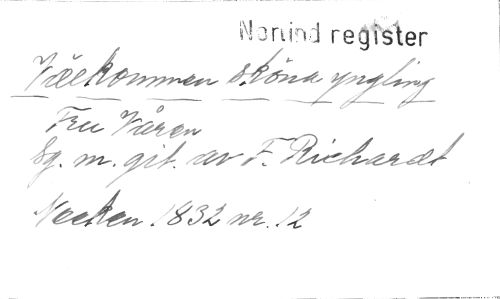 Norlind register
Välkommen sköna yngling
Fru Våren
Sg. m. git. av F. Richardt
Necken 1832 nr. 12